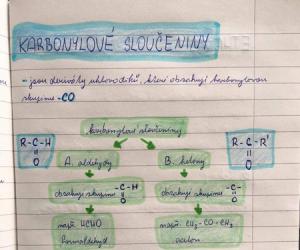 KARBONYLOVÉ SLOUČENINY
- jsou deriváty uhlovodíků, které obsahují karbonylovou
skupinu -CO
karbonylové sloučeniny
R-C-H
||
O
A. aldehydy
B. ketony
R-C-R'
||
O
obsahují skupinu -C-H
||
O
obsahují skupinu -C-
||
O
např. HCHO
formaldehyd
např. CH3-CO-CH3
aceton